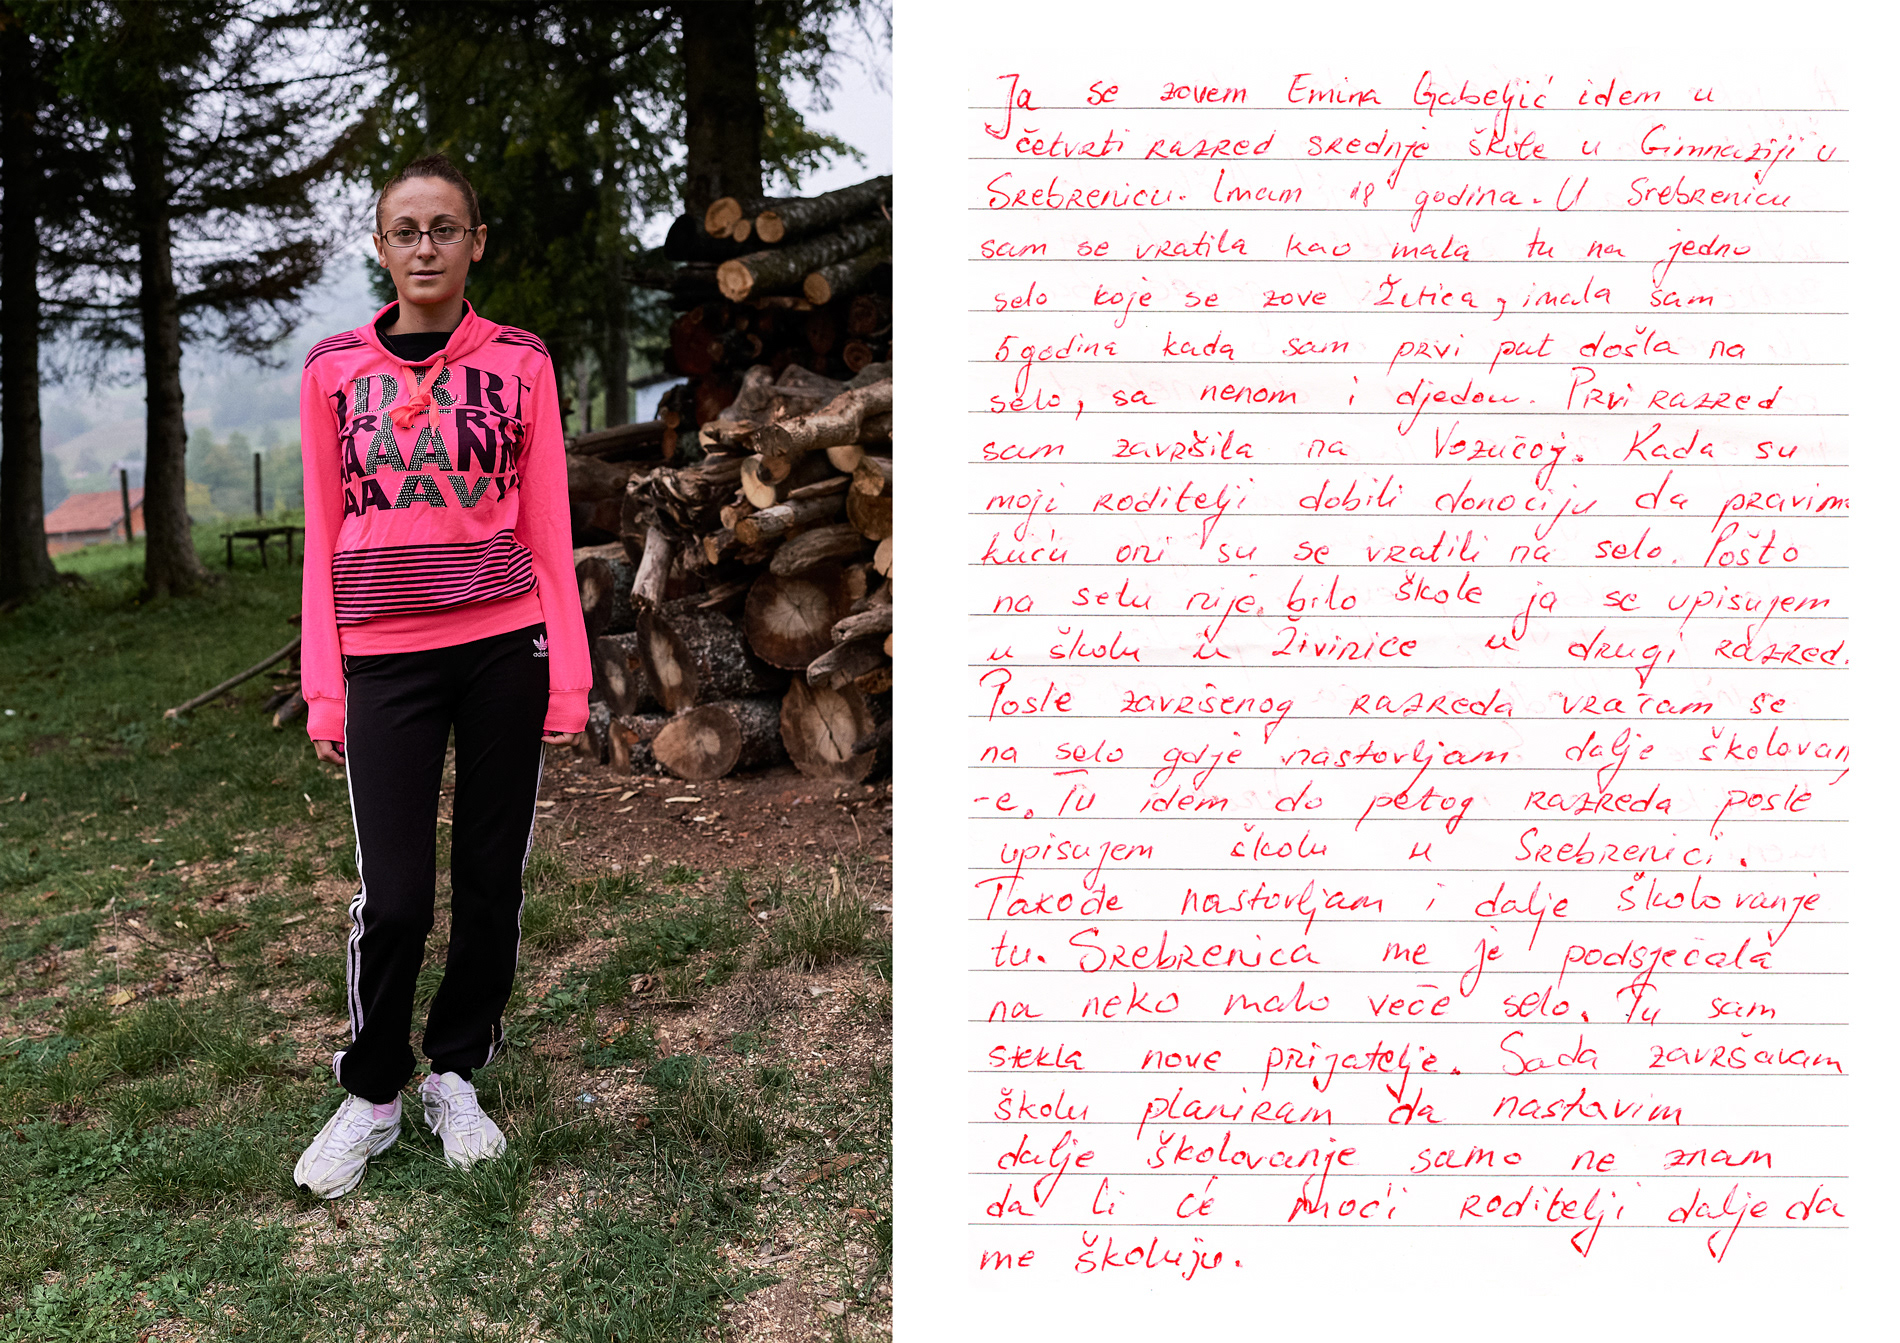 DRRT
RRT
AAAANN
AAAAV
adidas
Ja se zovem Emina Gabeljić idem u
četvrti razred srednje škole u Gimnaziji u
Srebrenicu. Imam 18 godina. U Srebrenicu
sam se vratila kao mala tu na jedno
selo koje se zove , imala sam
5 godina kada sam prvi put došla na
selo, sa nenom i djedom. Prvi razred
sam završila na Vozućoj. Kada su
moji roditelji dobili donociju da pravim
kuću oni su se vratili na selo. Pošto
na selu nije bilo škole ja se upisujem
u školu u Živinice u drugi razred.
Posle završenog razreda vraćam se
na selo gdje nastovljam dalje školovanj
-e. Tu idem do petog razreda posle
upisujem školu u Srebrenici.
Takođe nastovljam i dalje školovanje
tu. Srebrenica me je podsjećala
na neko malo veće selo. Tu sam
stekla nove prijatelje. Sada završavam
školu planiram da nastavim
dalje školovanje samo ne znam
da li će moći roditelji dalje da
me školuju.